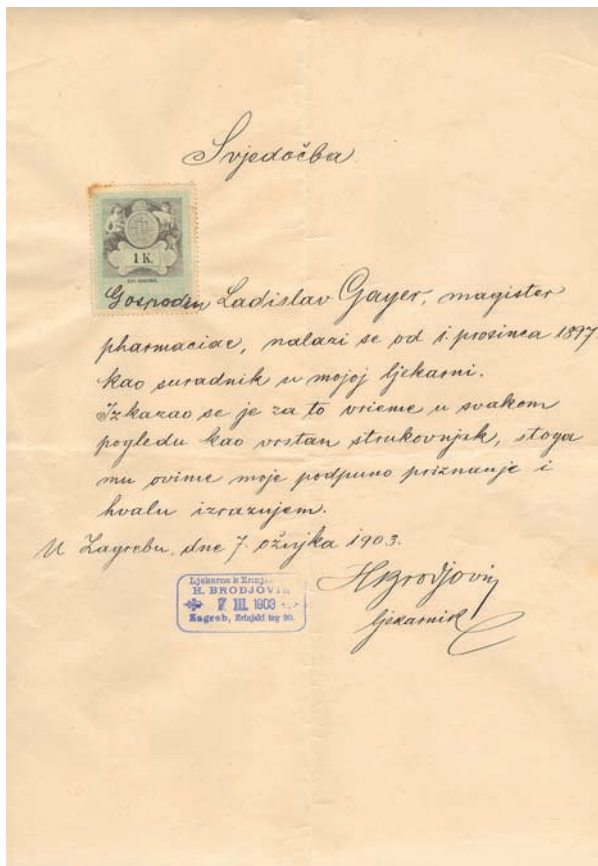 Svjedočba
1 K.
Gospodin Ladislav Gayer, magister
pharmaciae, nalazi se od 1. prosinca 1897.
kao suradnik u mojoj ljekarni.
Izkazao se je za to vrieme u svakom
pogledu kao vrstan strukovnjak, stoga
mu ovime moje podpuno priznanje i
hvalu izrazujem.
U Zagrebu, dne 7. ožujka 1903.
HBrodjovin
ljekarnik
Ljekarna k
H. BRODJOVIN
7 III. 1903
Zagreb, Zrinjski trg 20.